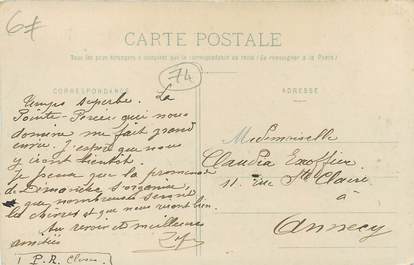 6f
CARTE POSTALE
Tous les pays étrangers n'acceptent pas la correspondance au recto (Se renseigner à la Poste)
74
CORRESPONDANCE
ADRESSE
Temps superbe. La
Pointe-Percée qui nous
domine me fait grand
envie. J'espère que nous
y irons bientôt.
Je pense que la promenade
de Dimanche s'organise,
et que nombreuses seront
les chèvres et que nous rirons bien.
Au revoir et meilleures
amitiés
Mademoiselle
Claudia Excoffier
11. rue Ste Claire
à
Annecy
P.R. Cluses